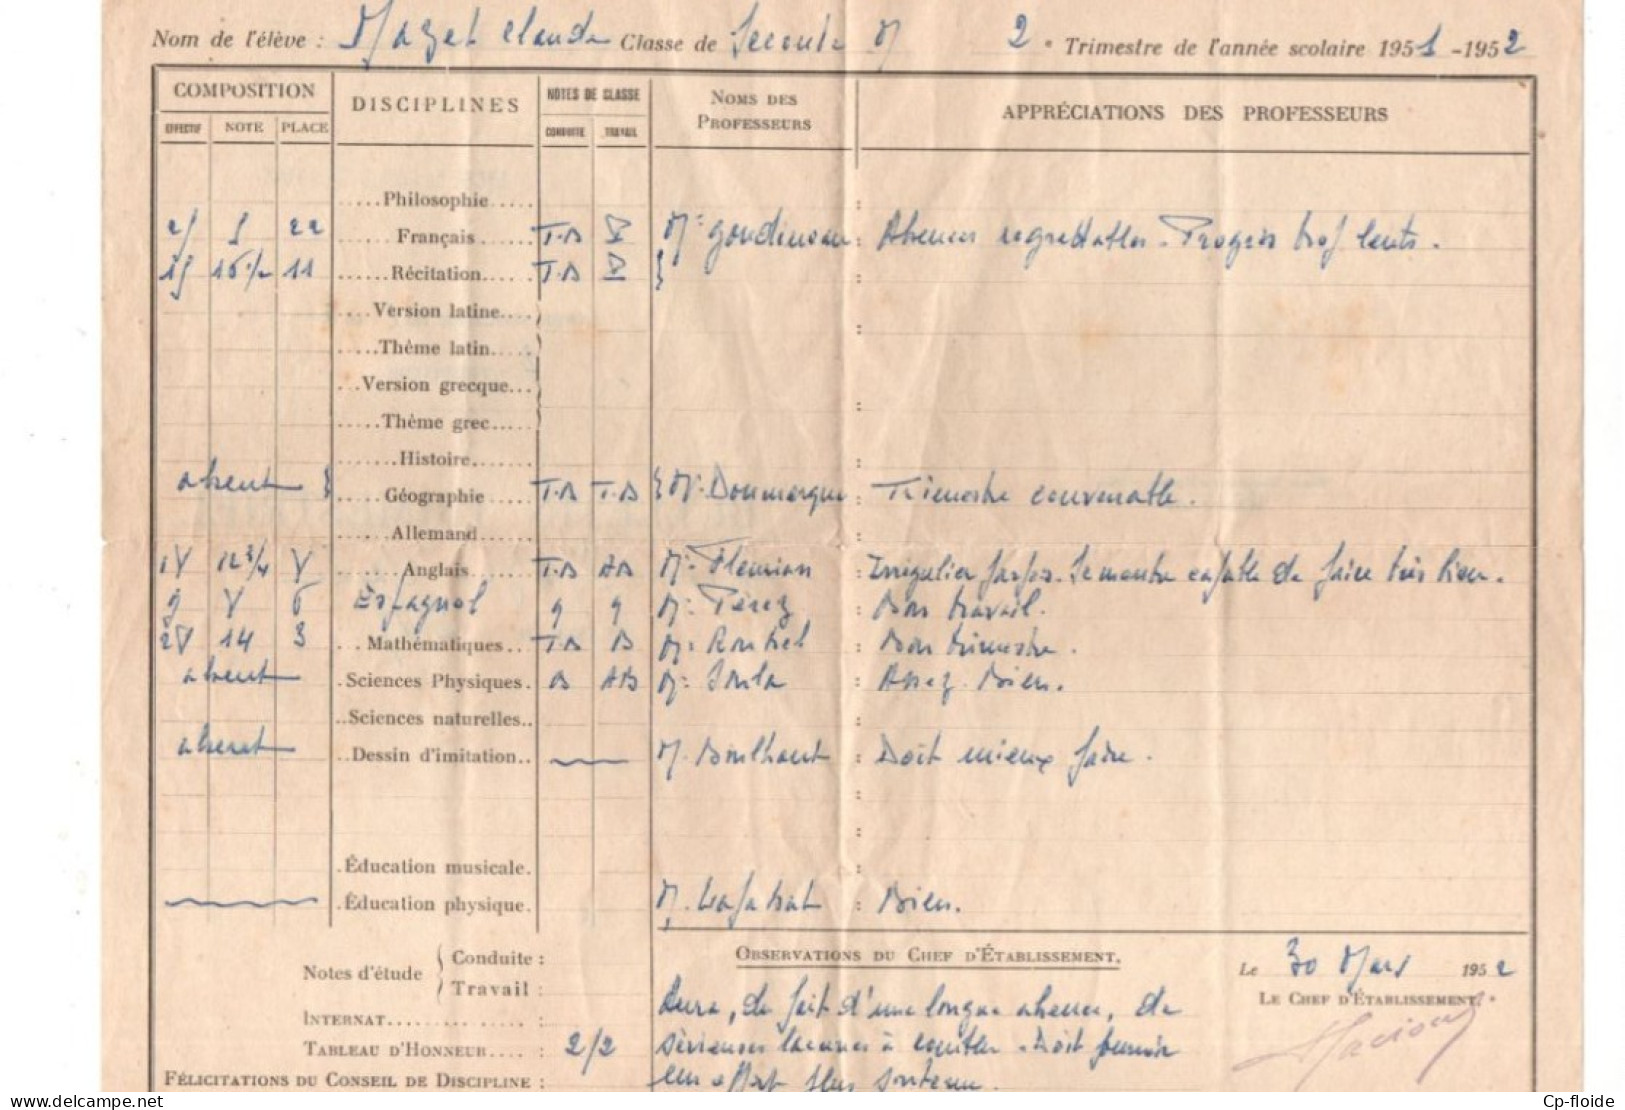 Nom de l'élève : Mazet Claude Classe de Seconde M 2e Trimestre de l'année scolaire 1951-1952
COMPOSITION DISCIPLINES NOTES DE CLASSE NOMS DES PROFESSEURS APPRÉCIATIONS DES PROFESSEURS
EFFECTIF NOTE PLACE CONDUITE TRAVAIL
Philosophie
22 Français T.B M: Goudineau : Absences regrettables. Progrès trop lents.
11 Récitation T.B
Version latine
Thème latin
Version grecque
Thème grec
Histoire
absent Géographie T.B T.B M: Doumergue Trimestre convenable.
Allemand
12 3/4 Anglais T.B AB M: : Irrégulier parfois. Se montre capable de faire très bien.
9 Espagnol 9 9 M: Perez : Bon travail.
14 3 Mathématiques T.B B M: : Bon trimestre.
absent Sciences Physiques B AB M: : Assez Bien.
Sciences naturelles
absent Dessin d'imitation M. : Doit mieux faire.
Éducation musicale
Éducation physique M. : Bien.
Notes d'étude Conduite :
Travail :
INTERNAT :
TABLEAU D'HONNEUR : 2/2
FÉLICITATIONS DU CONSEIL DE DISCIPLINE :
OBSERVATIONS DU CHEF D'ÉTABLISSEMENT.
Aura, du fait d'une longue absence, de
sérieuses lacunes à combler. Doit fournir
un effort plus soutenu.
LE 30 Mars 1952
LE CHEF D'ÉTABLISSEMENT,
www.delcampe.net
Cp-floide